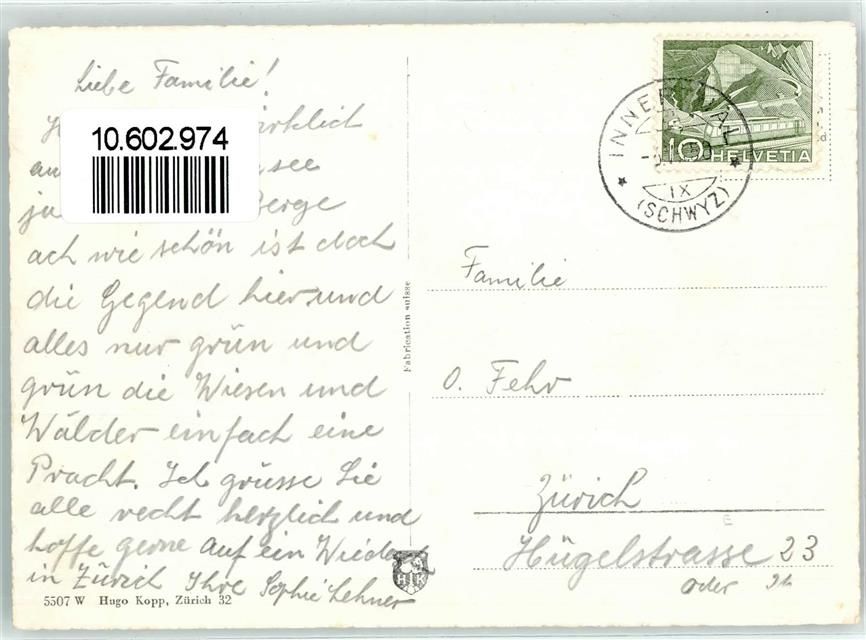 Liebe Familie!
10.602.974
wirklich
see
Berge
ach wie schön ist doch
die Gegend hier und
alles nur grün und
grün die Wiesen und
Wälder einfach eine
Pracht. Ich grüsse Sie
alle recht herzlich und
hoffe gerne auf ein Wieder
in Zürich Ihre Sophie Lehner
5507 W Hugo Kopp, Zürich 32
Fabrication suisse
HK
10 HELVETIA
IX
(SCHWYZ)
Familie
O. Fehr
Zürich
Hügelstrasse 23
oder